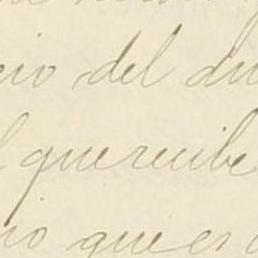 cio del du
l que recibe
io que es